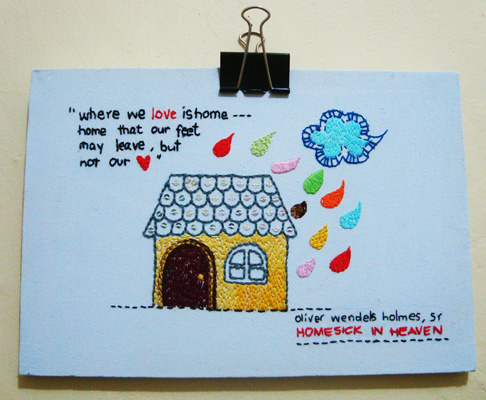 "where we love is home ---
home that our feet
may leave, but
not our ♥"
oliver wendels holmes, sr
HOMESICK IN HEAVEN